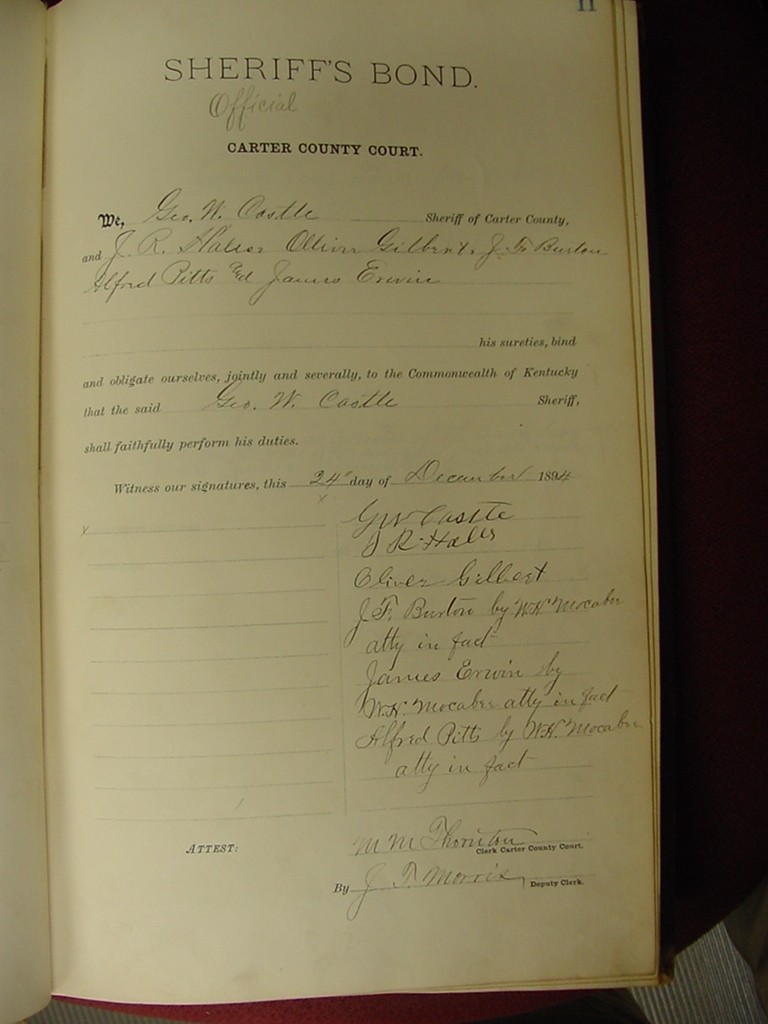 11
SHERIFF'S BOND.
Official
CARTER COUNTY COURT.
We, Geo. W. Castle Sheriff of Carter County,
and J. R. Oliver Gilbert, J. F. Burton
Alford Pitts and James Erwin
his sureties, bind
and obligate ourselves, jointly and severally, to the Commonwealth of Kentucky
that the said Geo. W. Castle Sheriff,
shall faithfully perform his duties.
Witness our signatures, this 24" day of December 1894
x
x
GW Castle
J R
Oliver Gilbert
J. F. Burton by W.H. Mocaber
atty in fact
James Erwin by
W.H. Mocaber atty in fact
Alfred Pitts by W.H. Mocaber
atty in fact
ATTEST: M M Thornton
Clerk Carter County Court.
By J. T. Morris, Deputy Clerk.